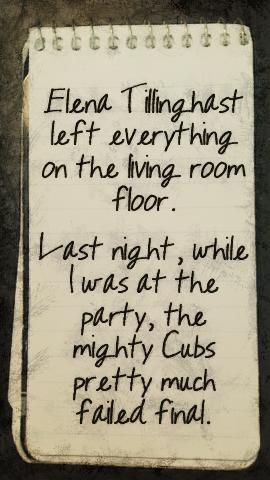 Elena Tillinghast
left everything
on the living room
floor.
Last night, while
I was at the
party, the
mighty Cubs
pretty much
failed final.